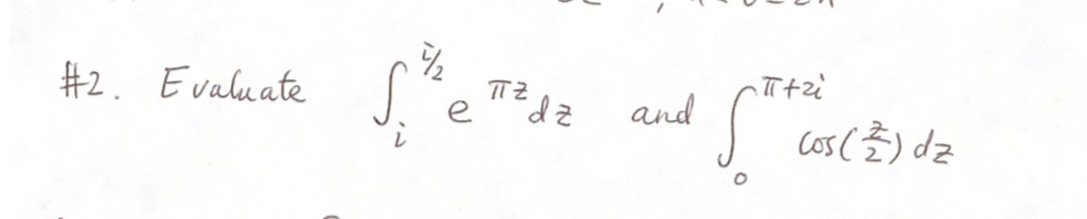 #2. Evaluate ∫_i^{i/2} e^{πz} dz and ∫_0^{π+2i} cos(z/2) dz